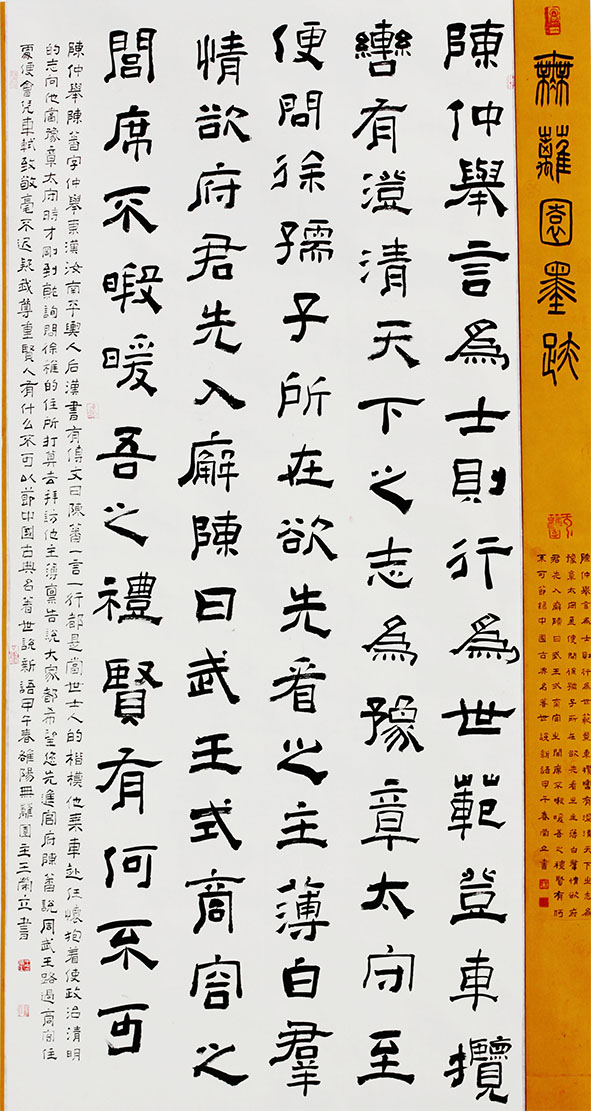 無蘺園墨跡
陳仲舉言爲士則行爲世範登車攬轡有澄清天下之志爲
豫章太守至便問徐孺子所在欲先看之主薄白羣情欲府
君先入廨陳曰武王式商容之閭席不暇暖吾之禮賢有何
不可節錄中國古典名著世說新語甲午春蘭立書
陳仲舉言爲士則行爲世範登車攬
轡有澄清天下之志爲豫章太守至
便問徐孺子所在欲先看之主薄白羣
情欲府君先入廨陳曰武王式商容之
閭席不暇暖吾之禮賢有何不可
陳仲舉陳蕃字仲舉東漢汝南平輿人后漢書有傳文曰陳蕃一言一行都是當世士人的楷模他乘車赴任懷抱着使政治清明
的志向他當豫章太守時才剛到就詢問徐稚的住所打算去拜訪他主薄稟告說大家都希望您先進官府陳蕃說周武王路過商容住
處便會凭車軾致敬毫不迟疑我尊重賢人有什么不可以節中國古典名著世說新語甲午春雒陽無蘺園主王蘭立書